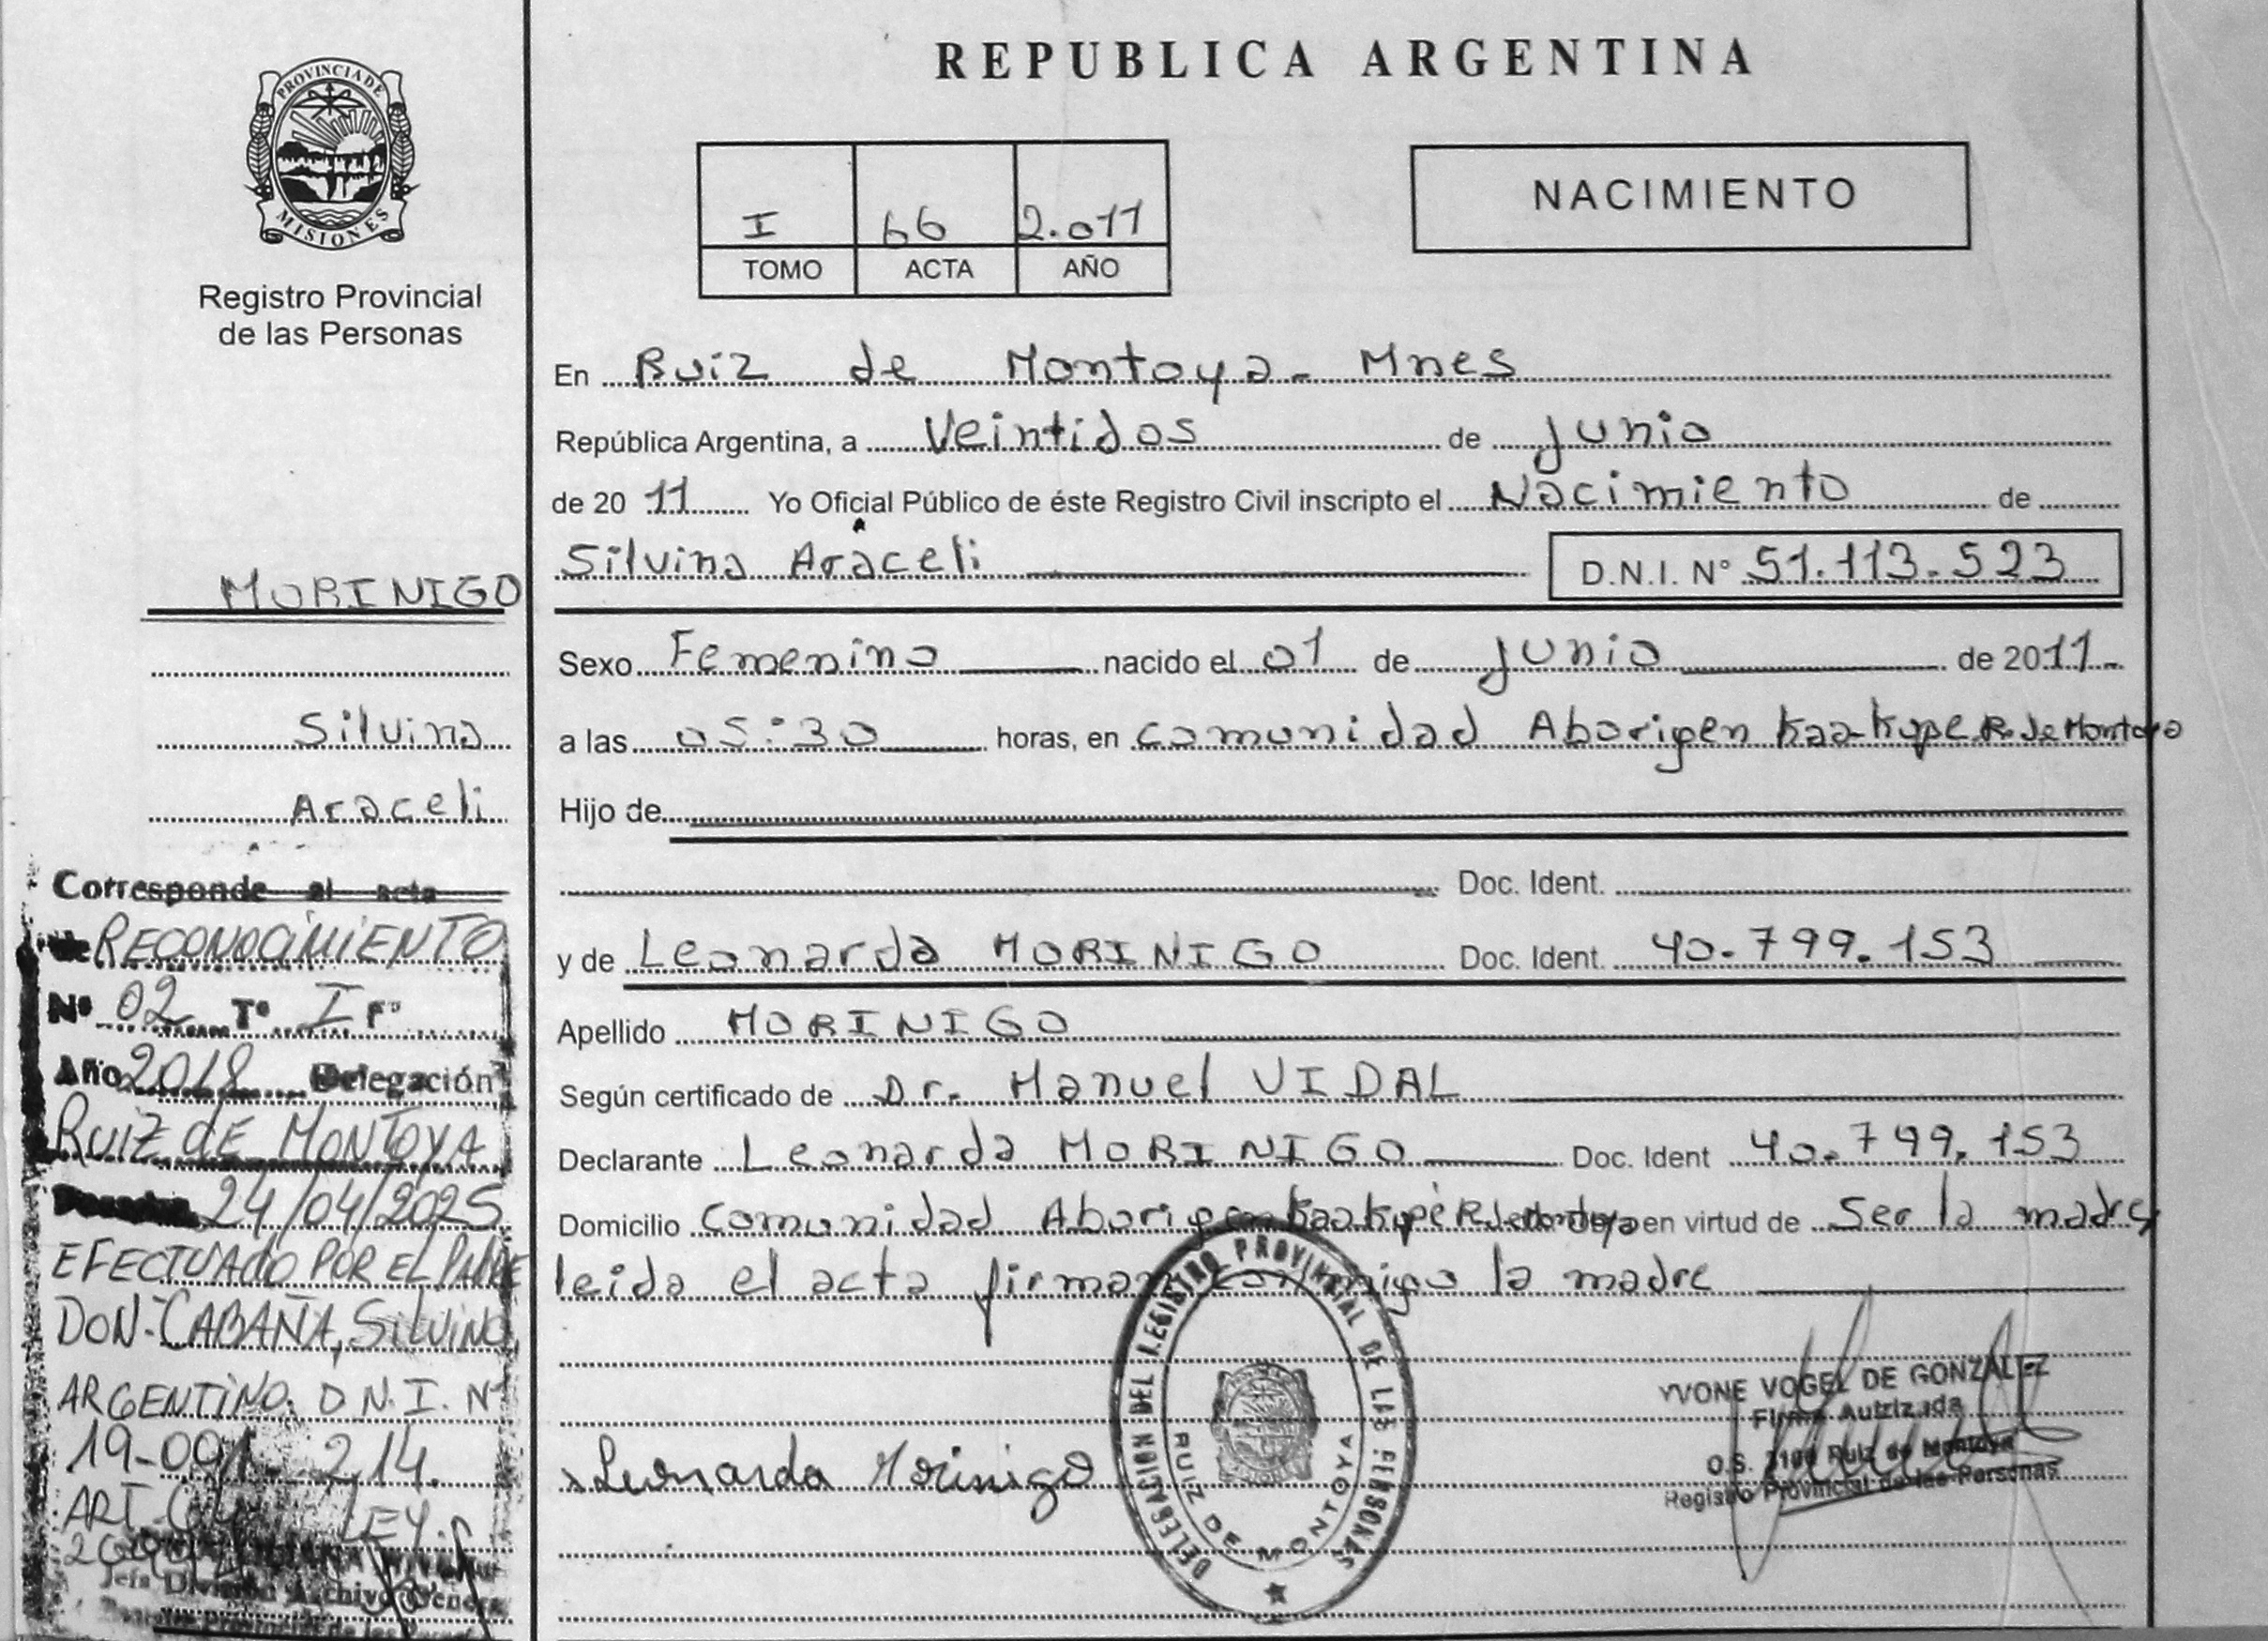 PROVINCIA DE
MISIONES
Registro Provincial
de las Personas
MORINIGO
Silvina
Araceli
Corresponde al acta
de RECONOCIMIENTO
Nº 02 Tº I Fº
Año 2018 Delegación
RUIZ dE MONTOYA
24/04/2025
EFECTUAdO POR EL PADRE
DON-CABAÑA, Silvino,
ARGENTINO. D.N.I. Nº
19-001. 214.
ART. LEY.
Jefa División Archivo General
REPUBLICA ARGENTINA
I 66 2.011
TOMO ACTA AÑO
NACIMIENTO
En Ruiz de Montoya- Mnes
República Argentina, a Veintidos de Junio
de 20 11 Yo Oficial Público de éste Registro Civil inscripto el Nacimiento de
Silvina Araceli D.N.I. N° 51.113.523
Sexo Femenino nacido el 01 de Junio de 2011-
a las 05:30 horas, en Comunidad Aborigen Kaa-Kupe R. de Montoya
Hijo de
Doc. Ident.
y de Leonarda MORINIGO Doc. Ident. 40.799.153
Apellido MORINIGO
Según certificado de Dr. Manuel VIDAL
Declarante Leonarda MORINIGO Doc. Ident 40.799.153
Domicilio Comunidad Aborigen Kaa Kupé R. de Montoya en virtud de Ser la madre,
leida el acta firman conmigo la madre
Leonarda Morinigo
DELEGACION DEL REGISTRO PROVINCIAL DE LAS PERSONAS
RUIZ DE MONTOYA
YVONE VOGEL DE GONZALEZ
Firma Autorizada
O.S. 3100 Ruiz de Montoya
Registro Provincial de las Personas